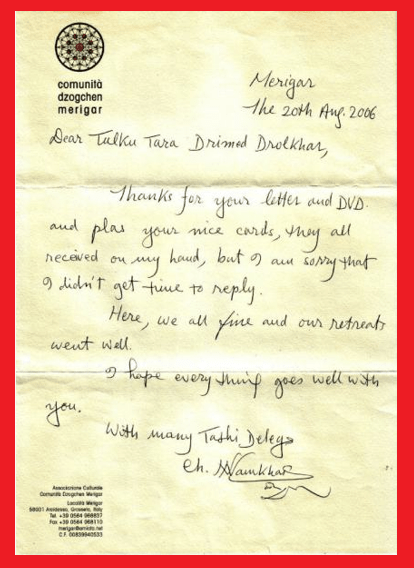 comunità
dzogchen
merigar
Merigar
The 20th Aug. 2006
Dear Tulku Tara Drimed Drolkhar,
Thanks for your letter and DVD.
and plas your nice cards, they all
received on my hand, but I am sorry that
I didn't get time to reply.
Here, we all fine and our retreats
went well.
I hope every thing goes well with
you.
With many Tashi Delegs
Ch. N Namkhai
Associazione Culturale
Comunità Dzogchen Merigar
Località Merigar
58031 Arcidosso, Grosseto, Italy
Tel. +39 0564 966837
Fax +39 0564 968110
C.F. 00839940533